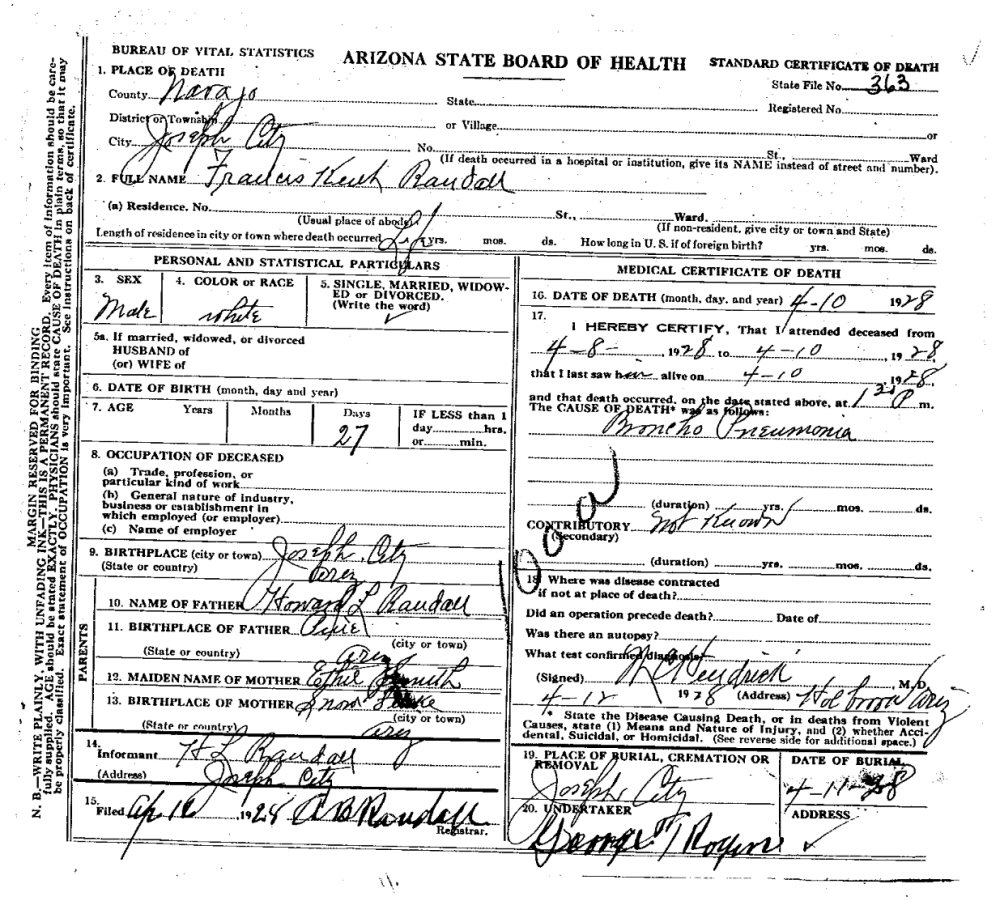 BUREAU OF VITAL STATISTICS
ARIZONA STATE BOARD OF HEALTH
STANDARD CERTIFICATE OF DEATH
State File No. 363
1. PLACE OF DEATH
County Navajo State
Registered No.
District or Township or Village or
City Joseph City No. St., Ward
(If death occurred in a hospital or institution, give its NAME instead of street and number).
2. FULL NAME Francis Keith Randall
(a) Residence. No. St., Ward.
(Usual place of abode) (If non-resident, give city or town and State)
Length of residence in city or town where death occurred yrs. mos. ds. How long in U. S. if of foreign birth? yrs. mos. ds.
PERSONAL AND STATISTICAL PARTICULARS
3. SEX
Male
4. COLOR or RACE
white
5. SINGLE, MARRIED, WIDOW-
ED or DIVORCED.
(Write the word)
5a. If married, widowed, or divorced
HUSBAND of
(or) WIFE of
6. DATE OF BIRTH (month, day and year)
7. AGE Years Months Days
27
IF LESS than 1
day hrs.
or min.
8. OCCUPATION OF DECEASED
(a) Trade, profession, or
particular kind of work
(b) General nature of industry,
business or establishment in
which employed (or employer)
(c) Name of employer
9. BIRTHPLACE (city or town) Joseph City
(State or country) Ariz
PARENTS
10. NAME OF FATHER Howard L Randall
11. BIRTHPLACE OF FATHER Pine
(city or town)
(State or country) Ariz
12. MAIDEN NAME OF MOTHER Ethel Smith
13. BIRTHPLACE OF MOTHER Snow
(city or town)
(State or country) Ariz
14.
Informant H L Randall
(Address) Joseph City
15.
Filed Ap 16, 1928 A B Randall
Registrar.
MEDICAL CERTIFICATE OF DEATH
16. DATE OF DEATH (month, day, and year) 4-10 1928
17.
I HEREBY CERTIFY, That I attended deceased from
4-8-, 1928 to 4-10, 1928,
that I last saw him alive on 4-10, 1928,
and that death occurred, on the date stated above, at 1 30 P m.
The CAUSE OF DEATH* was as follows:
Broncho Pneumonia
(duration) yrs. mos. ds.
CONTRIBUTORY Not Known
(Secondary)
(duration) yrs. mos. ds.
100a
18. Where was disease contracted
if not at place of death?
Did an operation precede death? Date of
Was there an autopsy?
What test confirmed diagnosis?
(Signed) Hendrick M. D.
4-12 1928 (Address) Holbrook Ariz
* State the Disease Causing Death, or in deaths from Violent
Causes, state (1) Means and Nature of Injury, and (2) whether Acci-
dental, Suicidal, or Homicidal. (See reverse side for additional space.)
19. PLACE OF BURIAL, CREMATION OR
REMOVAL
Joseph City
DATE OF BURIAL
4-11-28
20. UNDERTAKER
George T Rogers
ADDRESS
MARGIN RESERVED FOR BINDING
N. B.—WRITE PLAINLY, WITH UNFADING INK—THIS IS A PERMANENT RECORD. Every item of information should be care-
fully supplied. AGE should be stated EXACTLY. PHYSICIANS should state CAUSE OF DEATH in plain terms, so that it may
be properly classified. Exact statement of OCCUPATION is very important. See instructions on back of certificate.